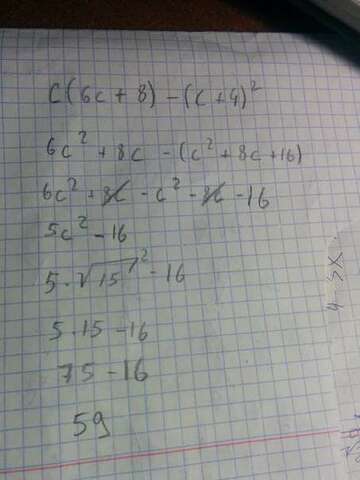 c(6c+8)-(c+4)²
6c²+8c-(c²+8c+16)
6c²+8c-c²-8c-16
5c²-16
5·√15²-16
5·15-16
75-16
59
4-5x